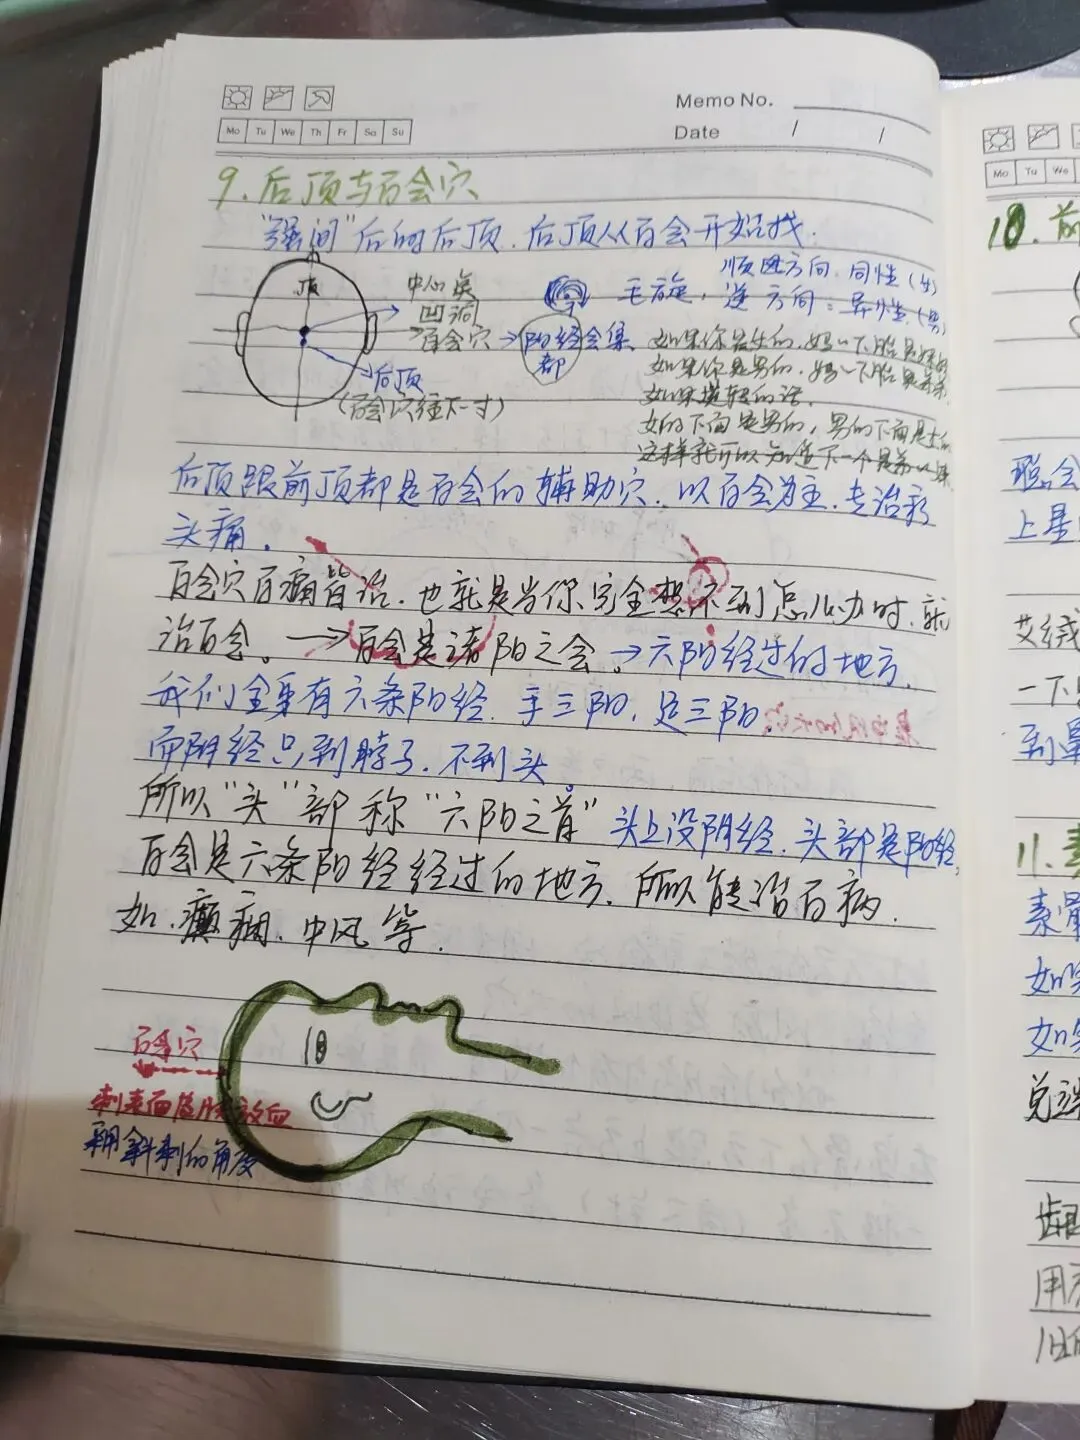 Memo No.
Mo Tu We Th Fr Sa Su
Date / /
9.后顶与百会穴
"强间"后的后顶.后顶从百会开始找.
顶
中心点
凹洞
百会穴→阳经会集
都
后顶
(百会穴往下一寸)
毛旋,
顺 方向.同性(女)
逆方向:异性.(男)
如果你是女的.妈一下胎是妹妹
如果你是男的.妈一下胎是弟弟.
如果逆转的话.
女的下面是男的,男的下面是女的
这样就可以知道下一个是弟以妹
后顶跟前顶都是百会的辅助穴.以百会为主.专治
头痛.
百会穴百病皆治.也就是当你完全想不到怎么办时.就
治百会。→百会是诸阳之会。→六阳经过的地方.
我们全身有六条阳经.手三阳,足三阳.
而阴经只到脖子.不到头。
所以"头"部称"六阳之首"头上没阴经.头部是阳经,
百会是六条阳经经过的地方.所以能治百病.
如.癫痫.中风等.
百会穴
刺表面 放血
用斜刺的角度
Mo Tu We
10.前
聪会
上星
艾绒
一下
到
11.素
素髎
如果
如果
兑端
龈
用